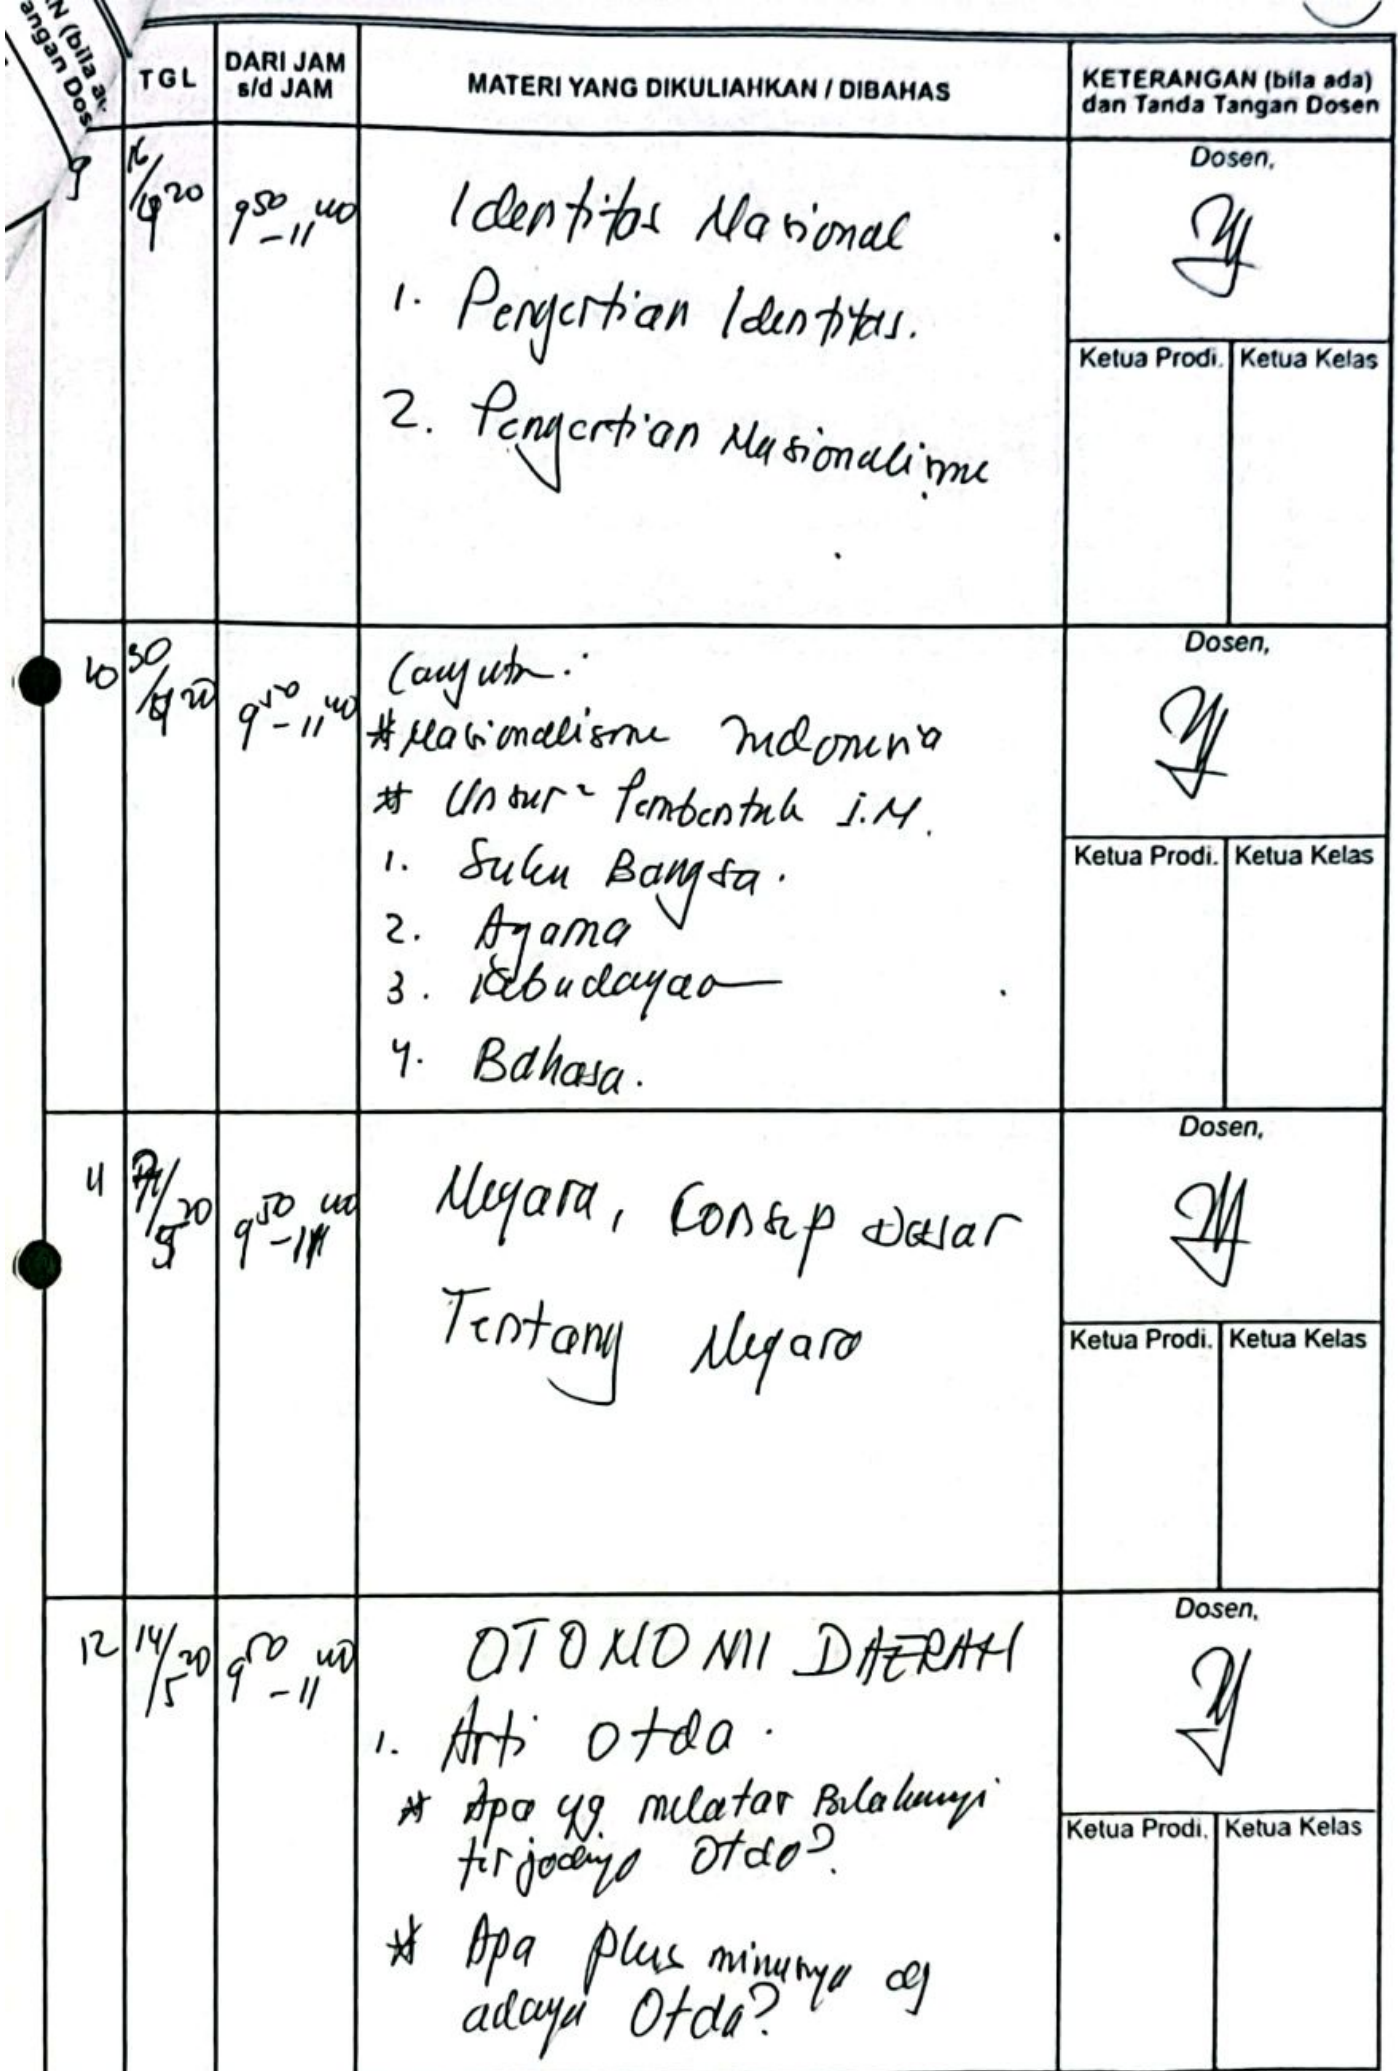 N (bila a
angan Dos
TGL
DARI JAM
s/d JAM
MATERI YANG DIKULIAHKAN / DIBAHAS
KETERANGAN (bila ada)
dan Tanda Tangan Dosen
9
16/4 20
9 50 - 11 40
Identitas Nasional
1. Pengertian Identitas.
2. Pengertian Nasionalisme
Dosen,
Ketua Prodi. Ketua Kelas
10
30/4 20
9 50 - 11 40
Lanjutan:
* Nasionalisme Indonesia
* Unsur² Pembentuk I.N.
1. Suku Bangsa.
2. Agama
3. Kebudayaan
4. Bahasa.
Dosen,
Ketua Prodi. Ketua Kelas
11
/5 20
9 50 - 11 40
Negara, Konsep Dasar
Tentang Negara
Dosen,
Ketua Prodi. Ketua Kelas
12
14/5 20
9 50 - 11 40
OTONOMI DAERAH
1. Arti Otda.
* Apa yg. melatar Belakangi
terjadinya Otda?
* Apa plus minusnya dg
adaya Otda?
Dosen,
Ketua Prodi. Ketua Kelas